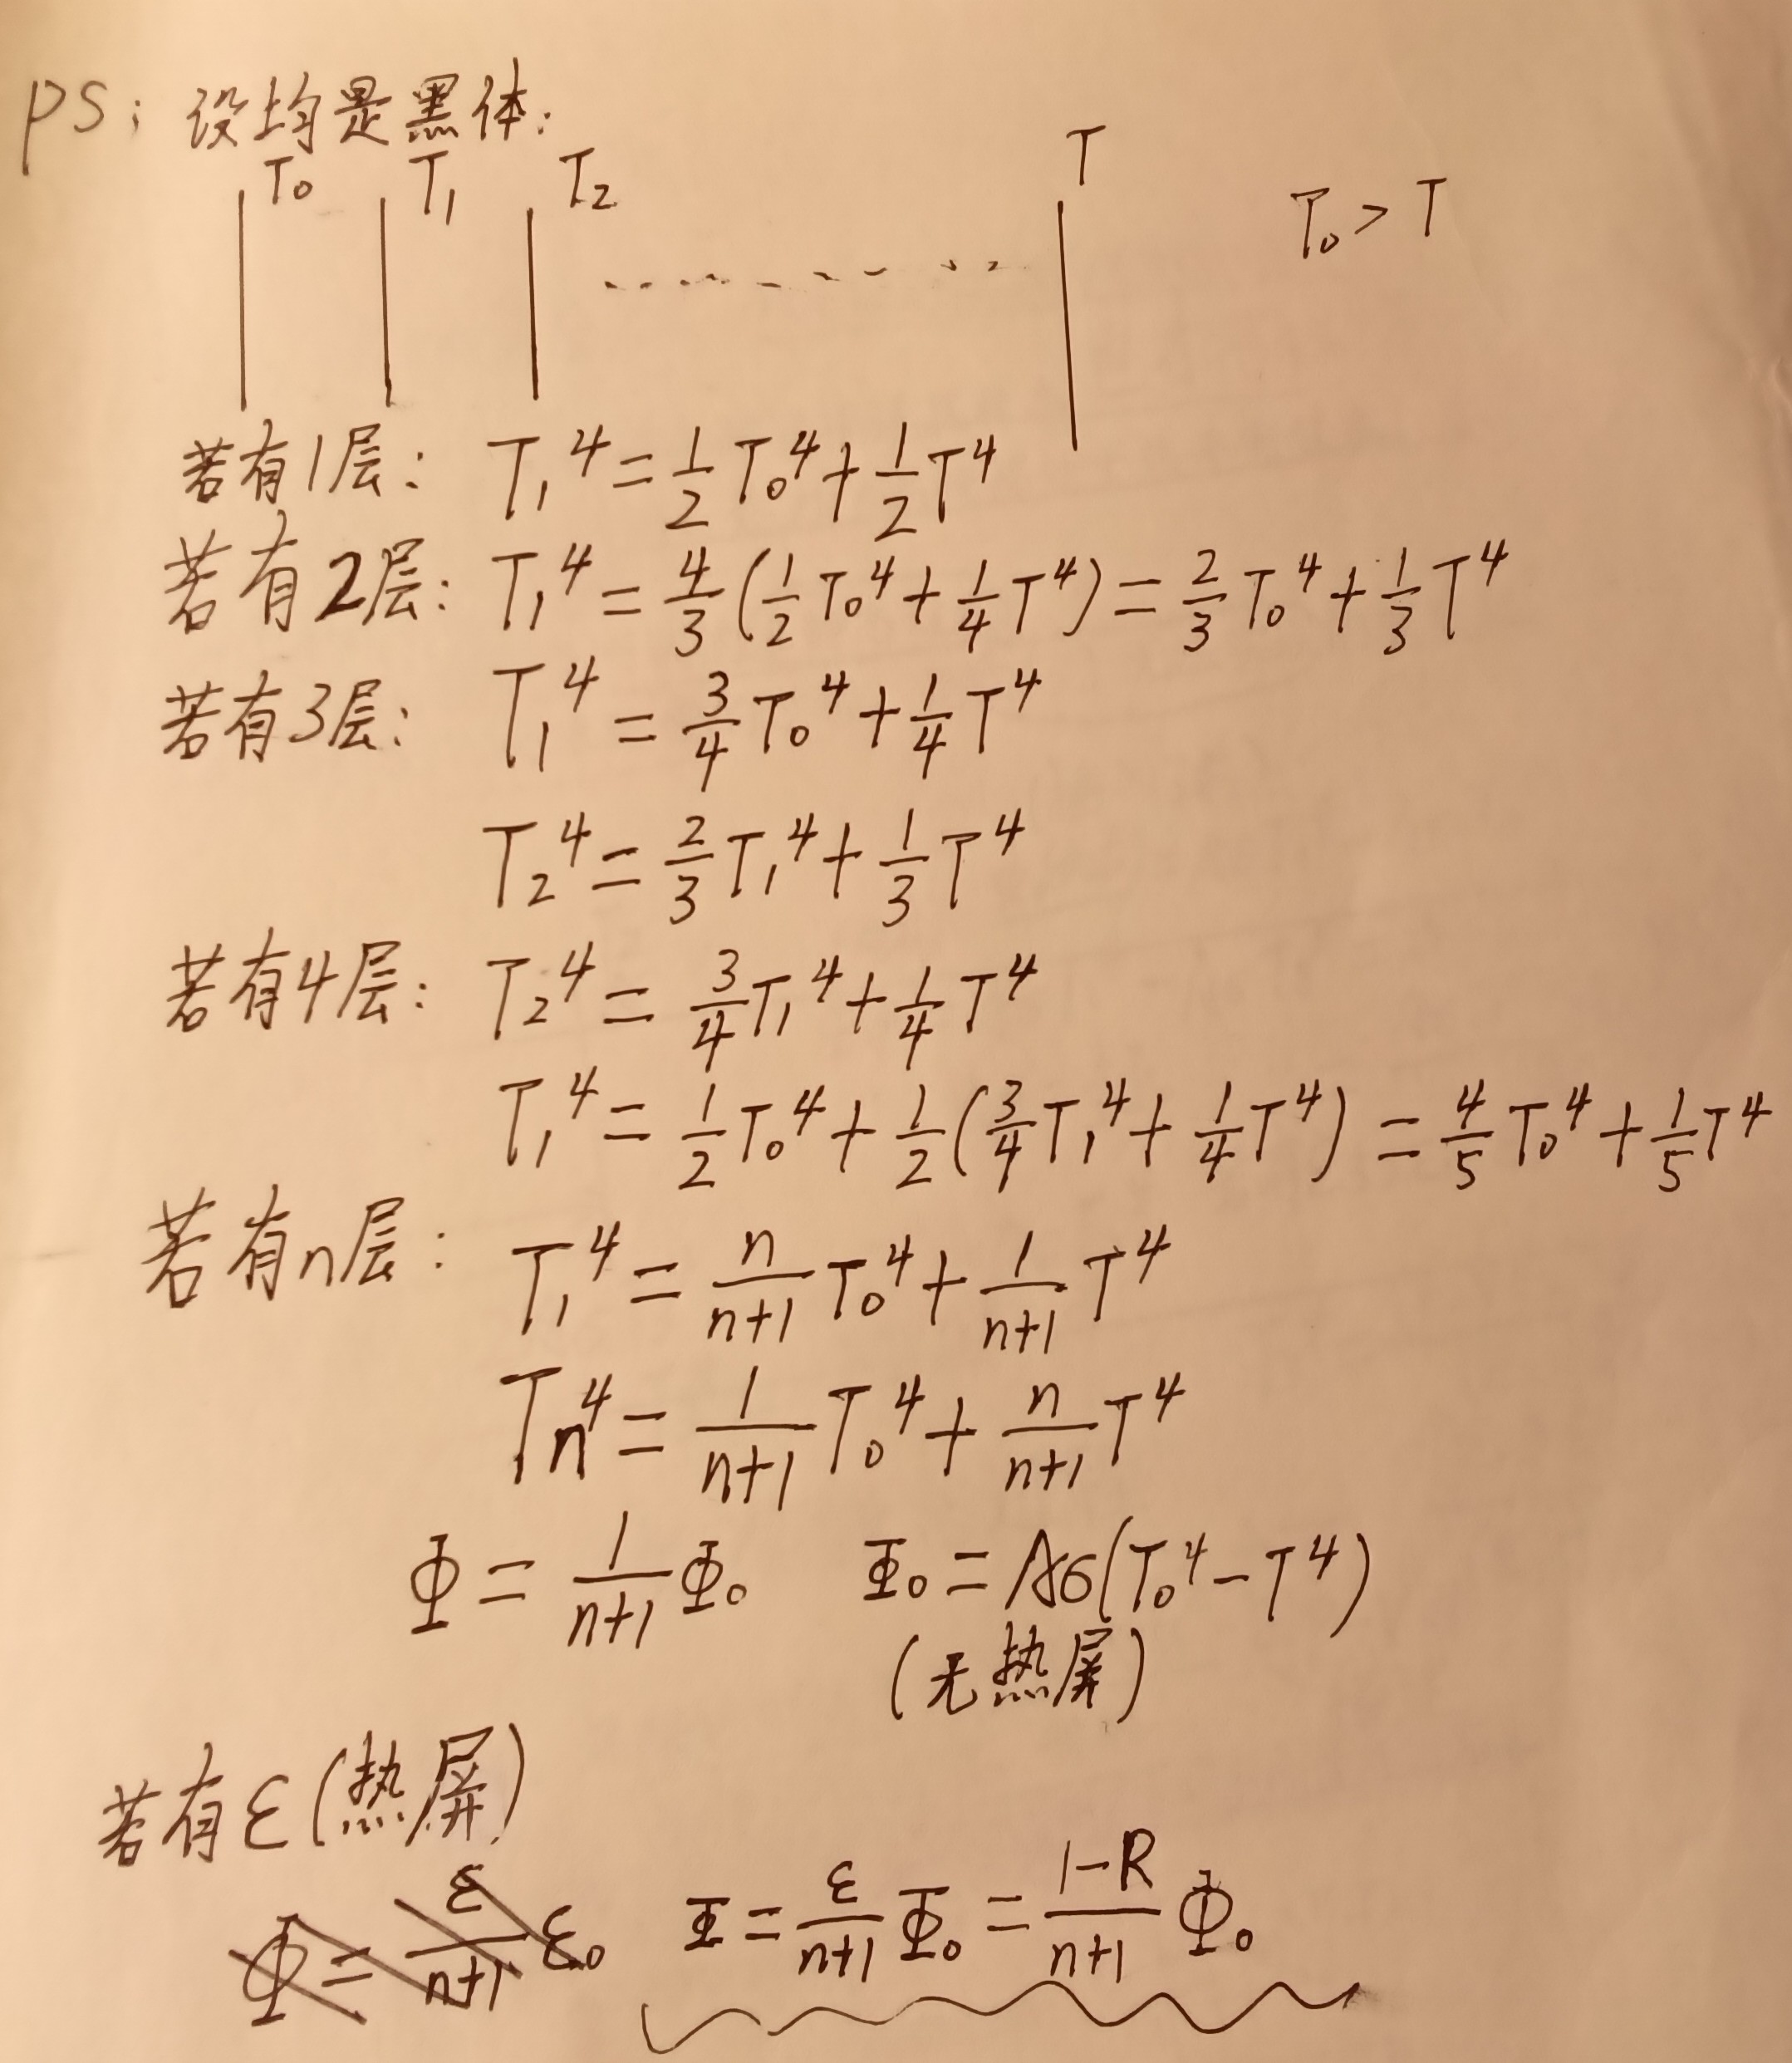 PS: 设均是黑体:
T₀ T₁ T₂ T T₀ > T
若有1层: T₁⁴ = 1/2 T₀⁴ + 1/2 T⁴
若有2层: T₁⁴ = 4/3 (1/2 T₀⁴ + 1/4 T⁴) = 2/3 T₀⁴ + 1/3 T⁴
若有3层: T₁⁴ = 3/4 T₀⁴ + 1/4 T⁴
T₂⁴ = 2/3 T₁⁴ + 1/3 T⁴
若有4层: T₂⁴ = 3/4 T₁⁴ + 1/4 T⁴
T₁⁴ = 1/2 T₀⁴ + 1/2 (3/4 T₁⁴ + 1/4 T⁴) = 4/5 T₀⁴ + 1/5 T⁴
若有n层: T₁⁴ = n/(n+1) T₀⁴ + 1/(n+1) T⁴
Tₙ⁴ = 1/(n+1) T₀⁴ + n/(n+1) T⁴
Φ = 1/(n+1) Φ₀ Φ₀ = Aσ(T₀⁴ - T⁴)
(无热屏)
若有ε(热屏)
Φ = ε/(n+1) ε₀ Φ = ε/(n+1) Φ₀ = (1-R)/(n+1) Φ₀